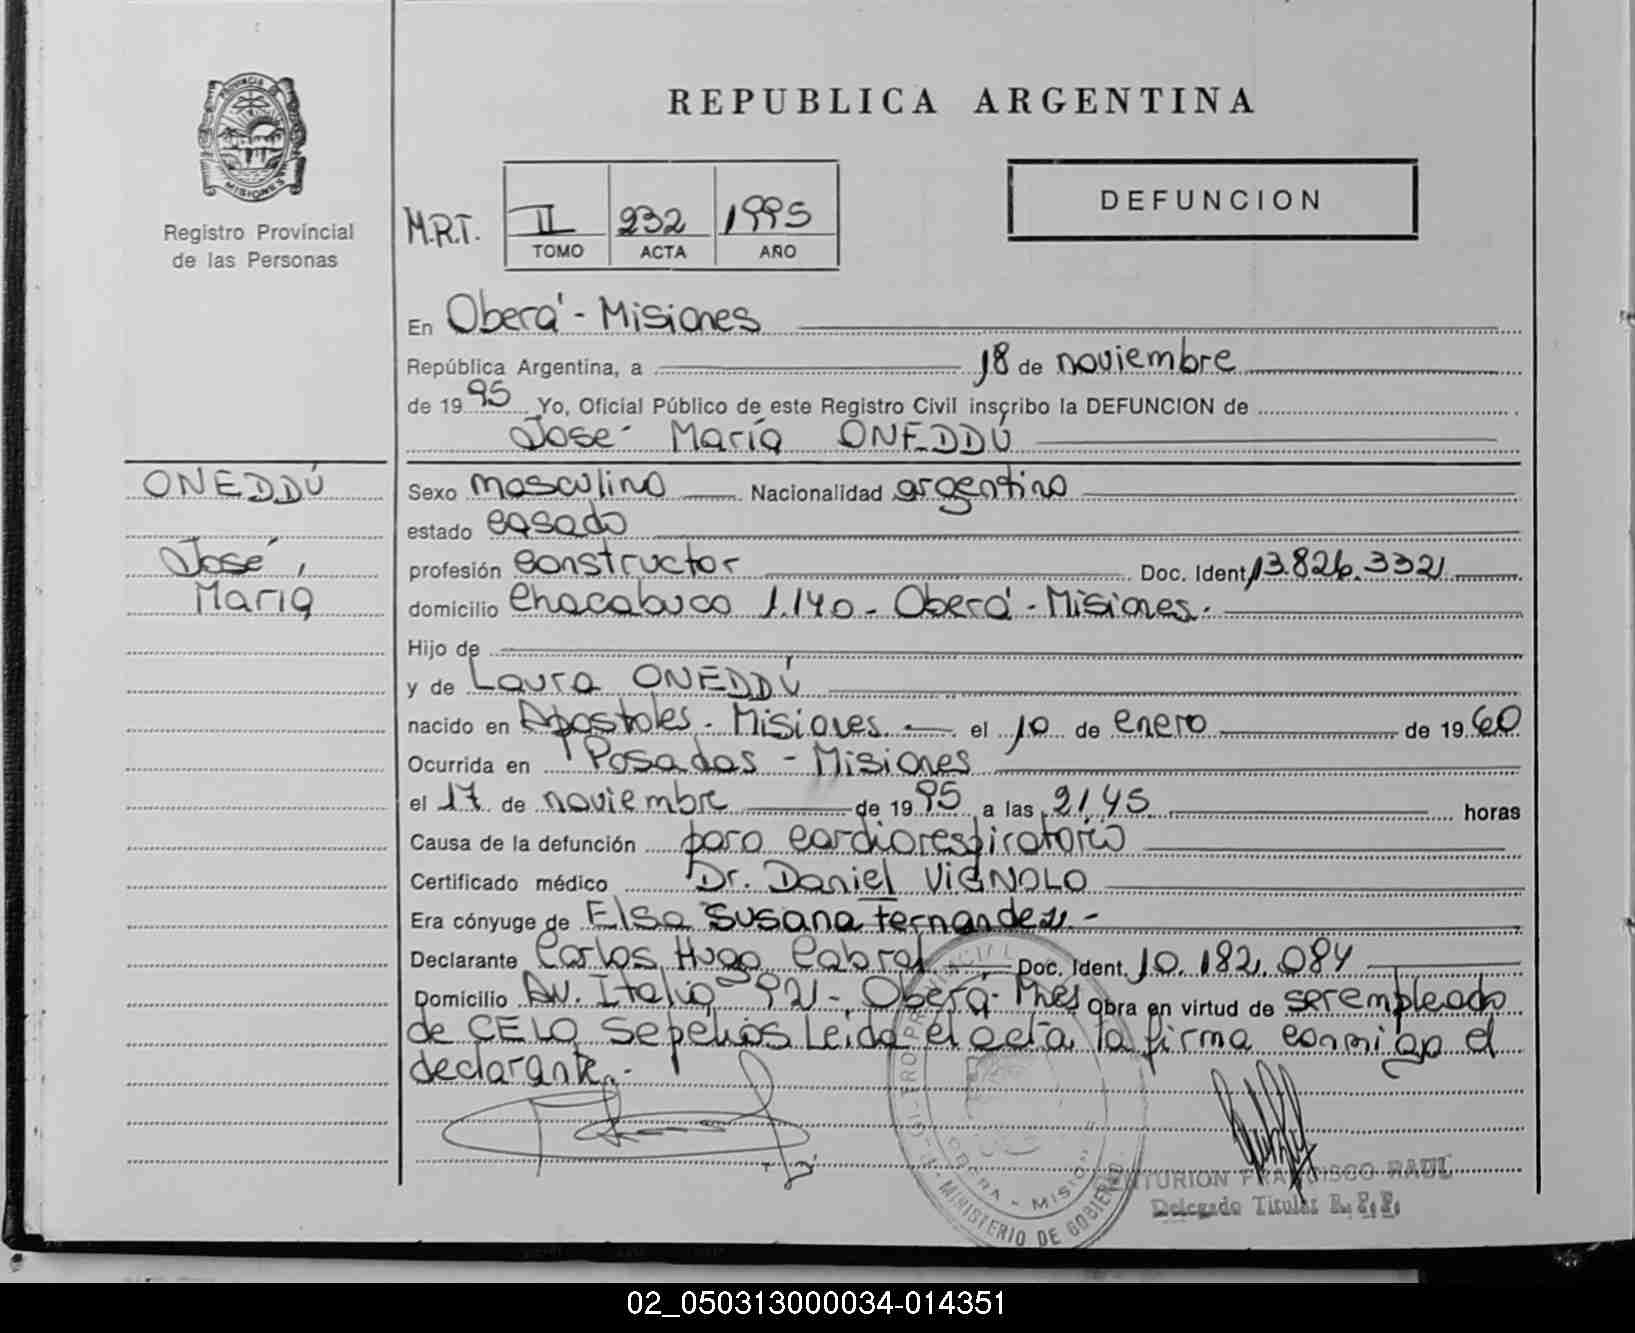 PROVINCIA DE
MISIONES
Registro Provincial
de las Personas
REPUBLICA ARGENTINA
DEFUNCION
M.R.T.
II 232 1995
TOMO ACTA AÑO
En Oberá - Misiones
República Argentina, a 18 de noviembre
de 1995 Yo, Oficial Público de este Registro Civil inscribo la DEFUNCION de
José María ONEDDÚ
ONEDDÚ
José
María
Sexo masculino Nacionalidad argentino
estado casado
profesión constructor Doc. Ident. 13.826.332
domicilio Chacabuco 1.140 - Oberá - Misiones.
Hijo de
y de Laura ONEDDÚ
nacido en Apostoles - Misiones. el 10 de enero de 1960
Ocurrida en Posadas - Misiones
el 17 de noviembre de 1995 a las 21,45 horas
Causa de la defunción paro cardiorespiratorio
Certificado médico Dr. Daniel VIGNOLO
Era cónyuge de Elsa Susana Fernandez.-
Declarante Carlos Hugo Cabral Doc. Ident. 10.182.084
Domicilio Av. Italia 92 - Oberá - Mnes Obra en virtud de ser empleado
de CELO Sepelios Leida el acta, la firma conmigo el
declarante.-
OBERA - MISIONES
MINISTERIO DE GOBIERNO
CENTURION FRANCISCO RAUL
Delegado Titular R. P. P.
02_050313000034-014351